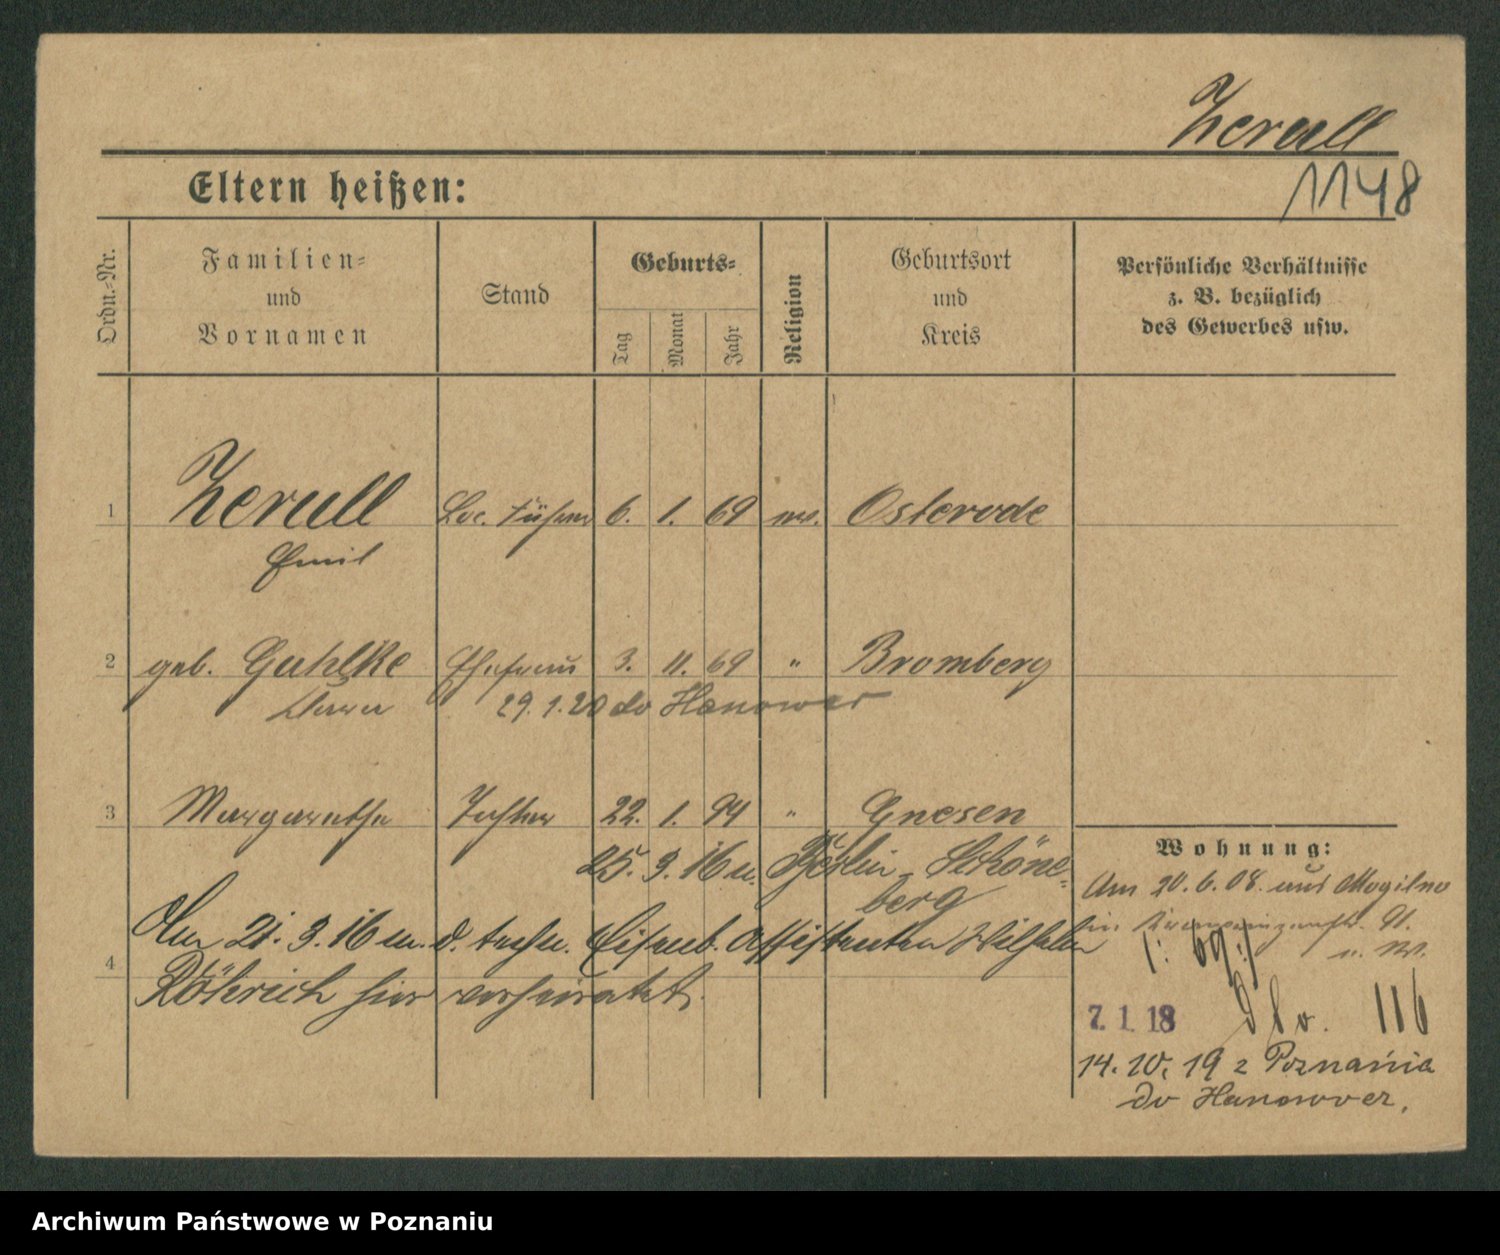 Zerull
1148
Eltern heißen:
Ordn.-Nr.
Familien-
und
Vornamen
Stand
Geburts-
Tag
Monat
Jahr
Religion
Geburtsort
und
Kreis
Persönliche Verhältnisse
z. B. bezüglich
des Gewerbes usw.
1 Zerull Loc. Führer 6. 1. 69 ev. Osterode
Emil
2 geb. Guhlke Ehefrau 3. 11. 69 " Bromberg
29.1.20 do Hanower
3 Margarethe Tochter 22. 1. 94 " Gnesen
25. 3. 16 n. Berlin-Schöne-
berg
Am 21. 3. 16 m. d. techn. Eisenb. Assistenten Wilhelm
4 Röhrich hier verheiratet.
Wohnung:
Am 20. 6. 08. aus Mogilno
7. 1. 18 116
14. 10. 19 z Poznania
do Hanower.
Archiwum Państwowe w Poznaniu